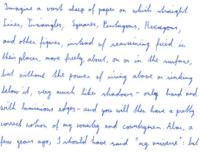 Imagine a vast sheet of paper on which straight
Lines, Triangles, Squares, Pentagons, Hexagons,
and other figures, instead of remaining fixed in
their places, move freely about, on or in the surface,
but without the power of rising above or sinking
below it, very much like shadows - only hard and
with luminous edges - and you will then have a pretty
correct notion of my country and countrymen. Alas, a
few years ago, I should have said "my universe": but